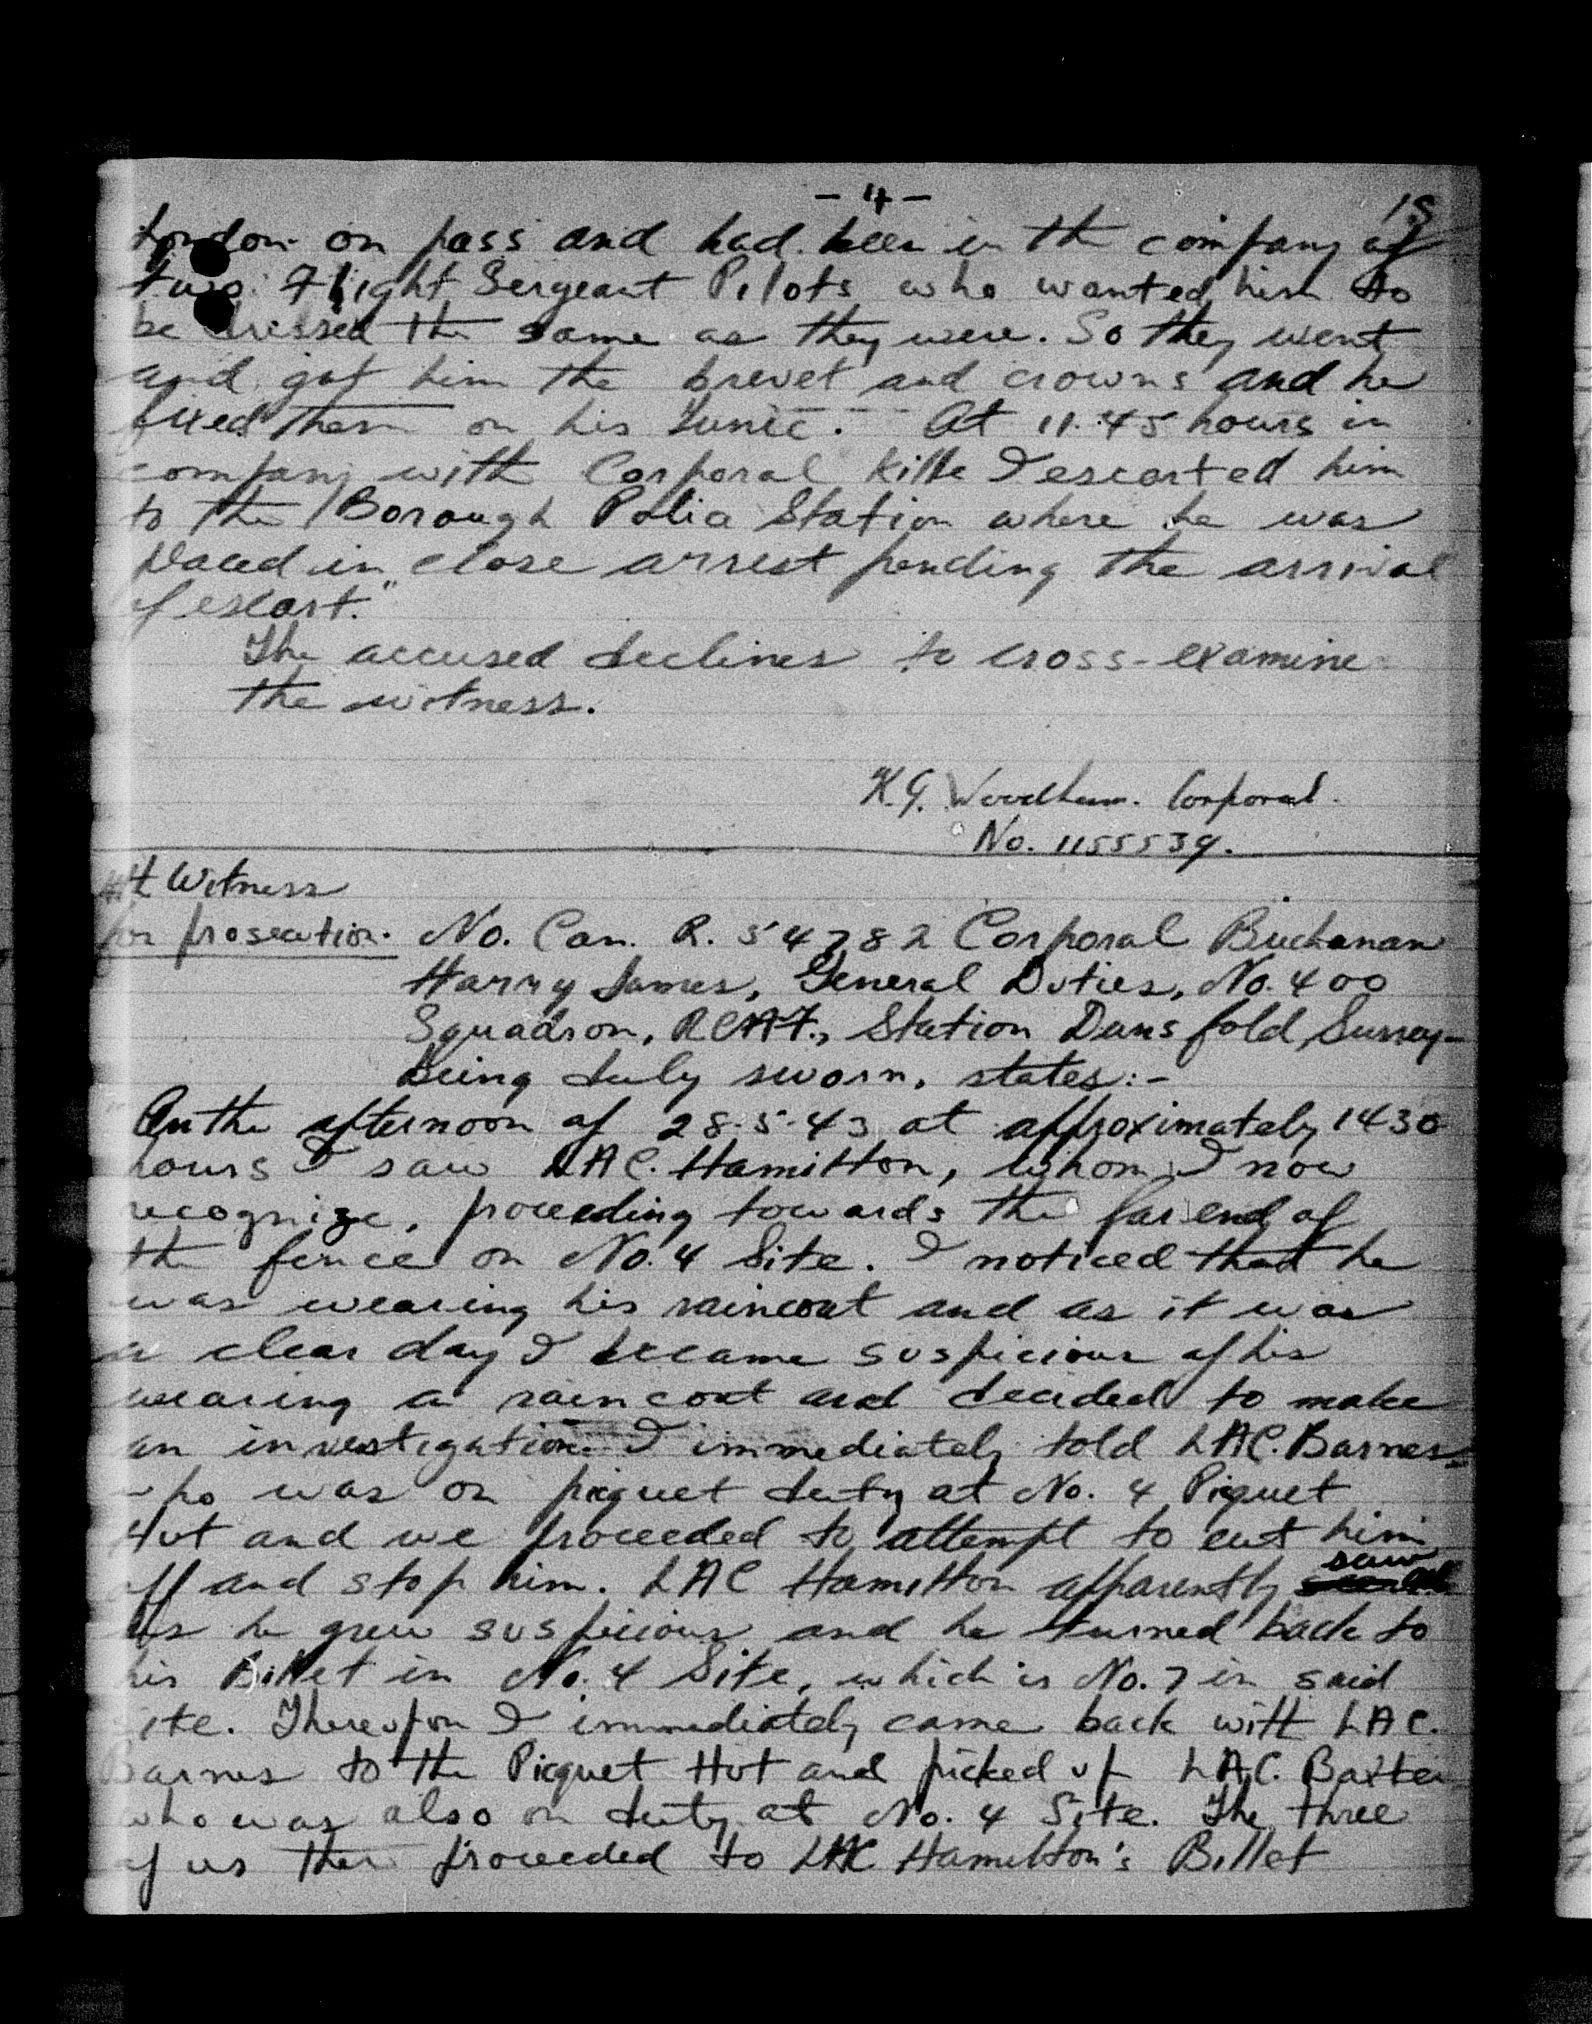 - 4 -
London on pass and had been in the company of
two Flight Sergeant Pilots who wanted him to
be dressed the same as they were. So they went
and got him the brevet and crowns and he
fixed them on his tunic. At 11.45 hours in
company with Corporal I escorted him
to the Borough Police Station where he was
placed in close arrest pending the arrival
of escort."
The accused declines to cross-examine
the witness.
K.G. Woodham. Corporal.
No. 1155539.
4th Witness
for prosecution. No. Can. R. 54782 Corporal Buchanan
Harry James, General Duties, No. 400
Squadron, RCAF., Station Dunsfold, Surrey-
being duly sworn, states:-
On the afternoon of 28.5.43 at approximately 1430
hours I saw LAC. Hamilton, whom I now
recognize, proceeding towards the far end of
the fence on No. 4 Site. I noticed that he
was wearing his raincoat and as it was
a clear day I became suspicious of his
wearing a raincoat and decided to make
an investigation. I immediately told LAC. Barnes
who was on picquet duty at No. 4 Picquet
Hut and we proceeded to attempt to cut him
off and stop him. LAC Hamilton apparently saw
us he grew suspicious and he turned back to
his Billet in No. 4 Site, which is No. 7 in said
site. Thereupon I immediately came back with LAC.
Barnes to the Picquet Hut and picked up LAC. Baxter
who was also on duty at No. 4 Site. The three
of us then proceeded to LAC Hamilton's Billet